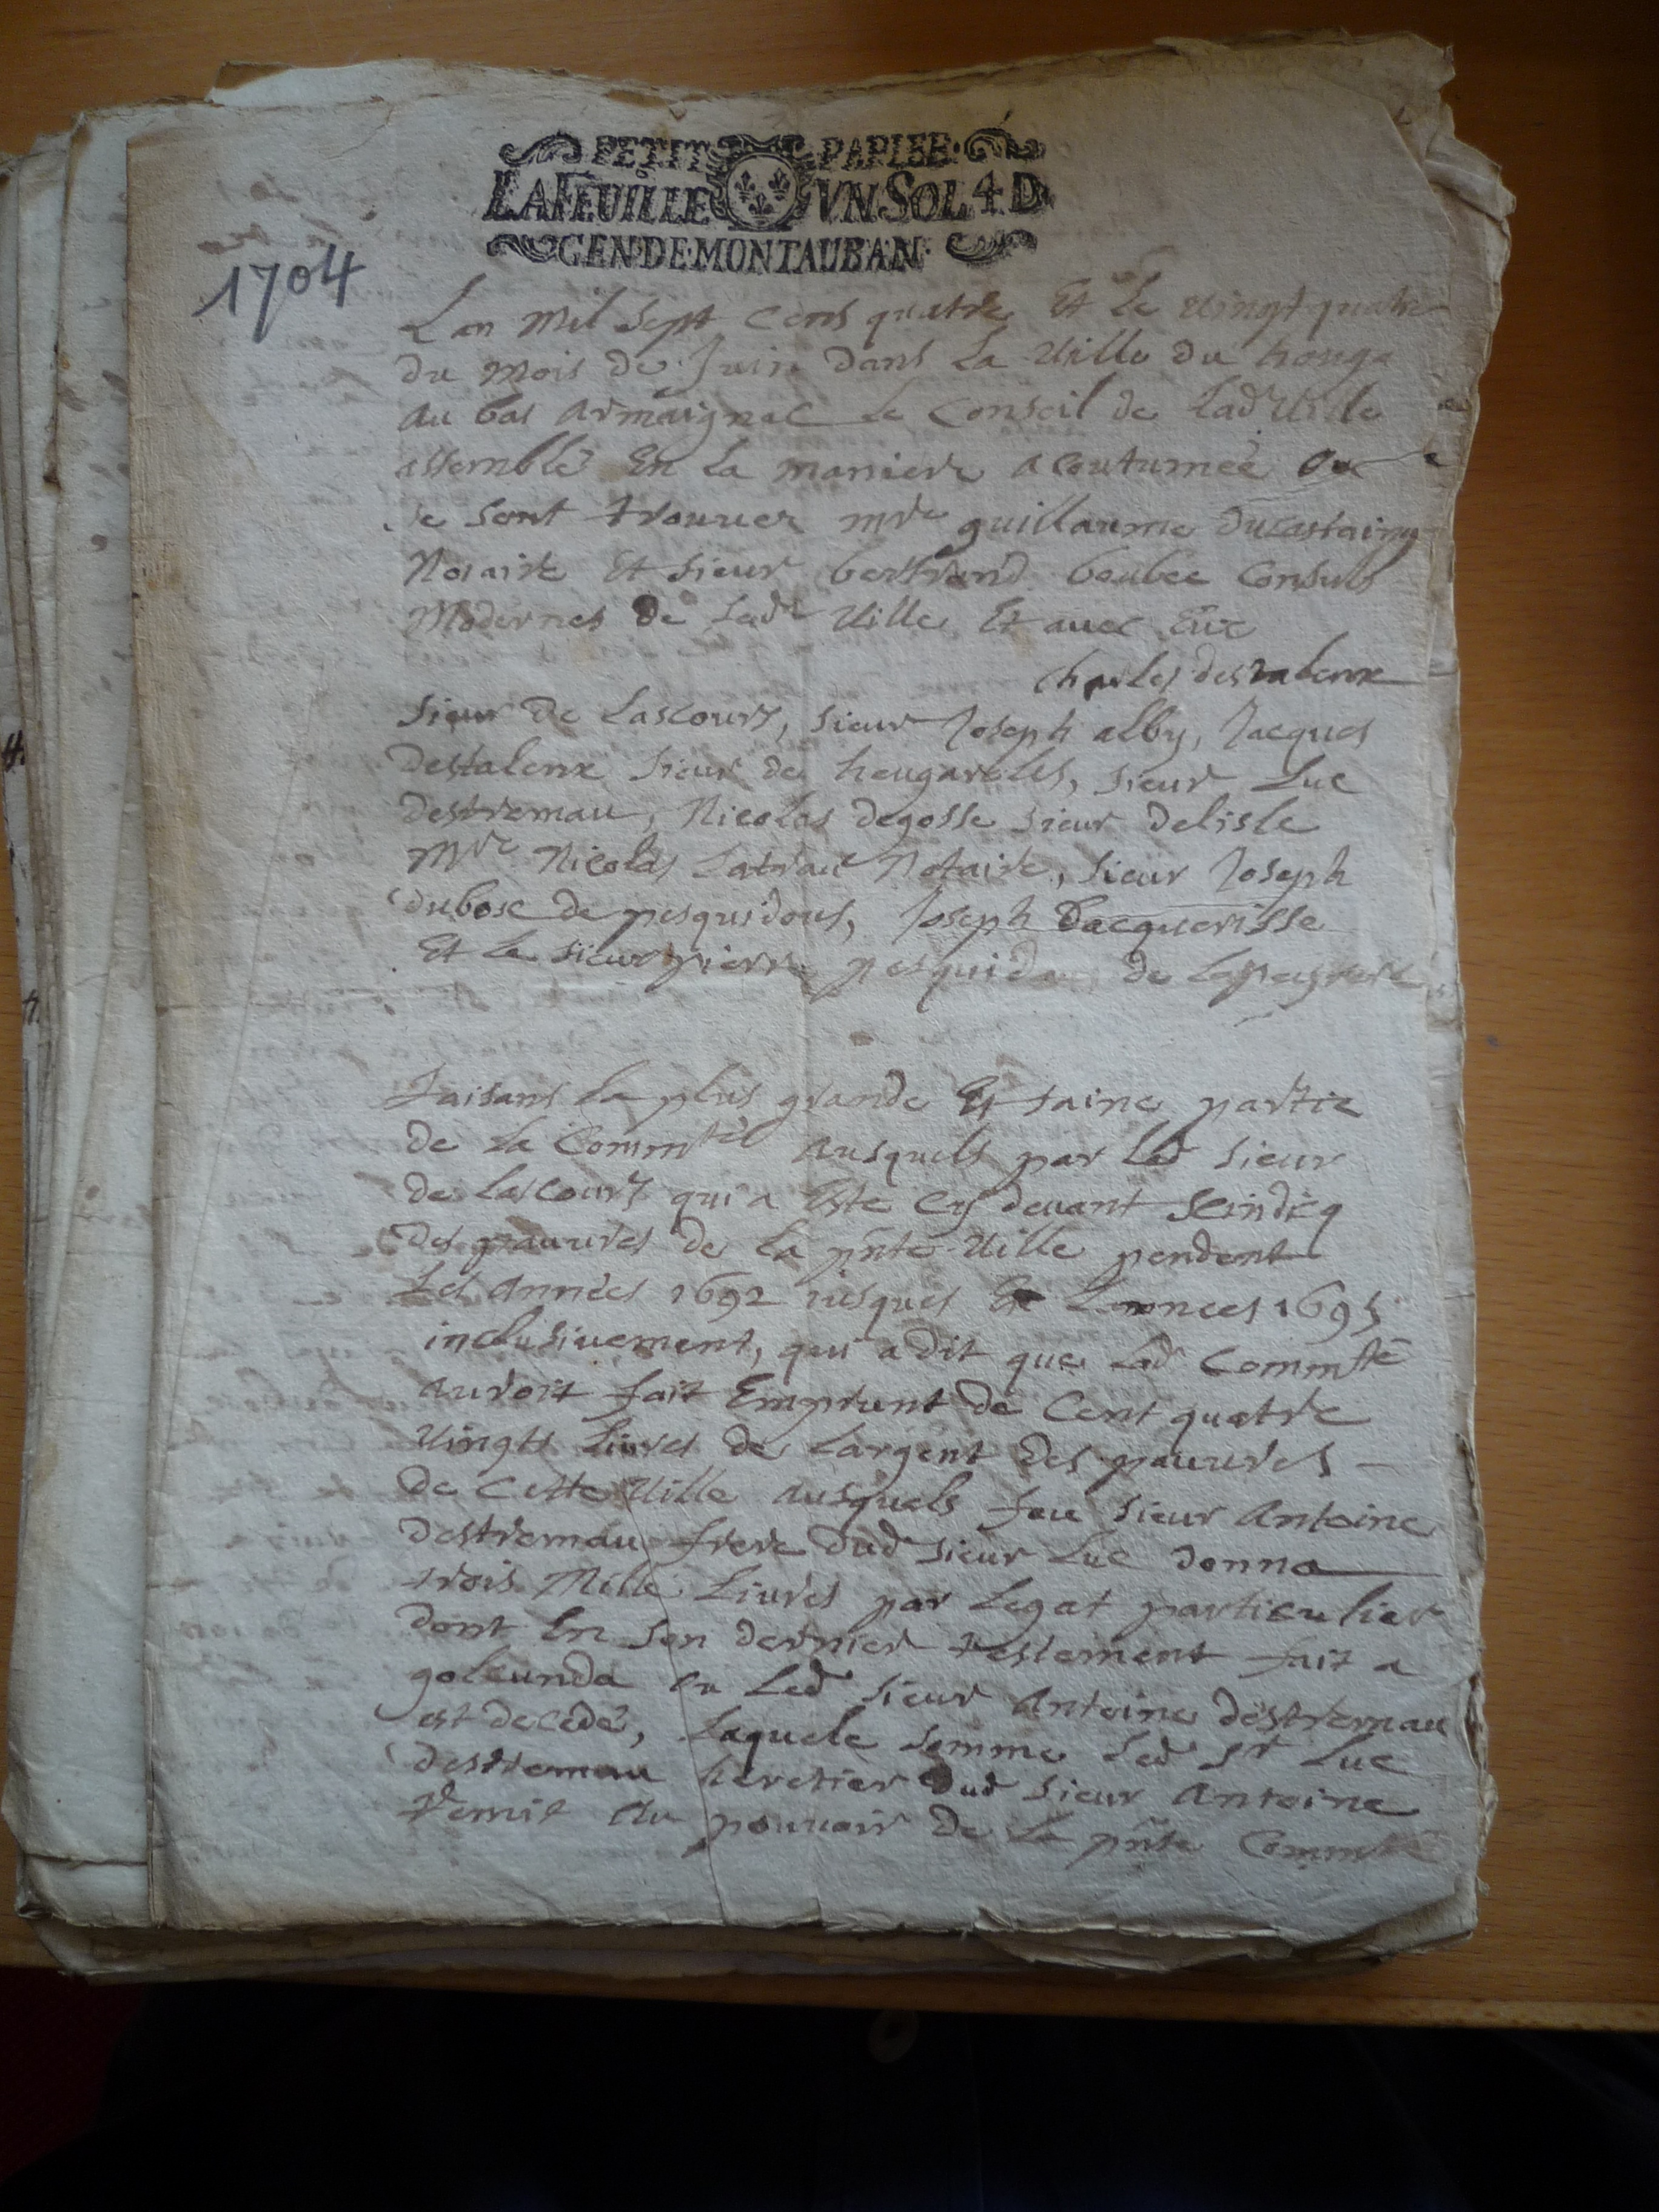 PETIT PAPIER
LA FEUILLE VN SOL 4 D
GEN DE MONTAUBAN
1704
Lan mil sept cens quatre Et le vingt quatre
du mois de Juin dans la Ville du houga
au bas armaignac le Conseil de lad Ville
assemblé En la maniere acoutumée
se sont trouvez mre guillaume ducastaing
Notaire Et sieur bertrand boubee Consuls
Modernes de lade Ville Et avec Eux
Charles destalenx
sieur de Lascourt, sieur Joseph alby, Jacques
destalenx sieur de heugarolés, sieur Luc
destremau, Nicolas degosse sieur delisle
Mre Nicolas Latrau Notaire, sieur Joseph
dubosc de pesquidous, Joseph Dacquerisse
Et le sieur pierre pesquidou de
faisans la plus grande Et saine partie
de la Commté ausquels par led sieur
de Lascourt qui a Esté Cy devant scindicq
des pauvres de la pnte Ville pendent
Les années 1692 jusques Et Lannees 1695
inclusivement, qui a dit que lad Commté
auroit fait Emprunt de Cent quatre
vingts Livres de Largent des pauvres
de Cette Ville ausquels feu sieur Antoine
destremau frere dud sieur Luc donna
trois Mille Livres par Legat particulier
dont En son dernier testement fait a
golcunda ou Led sieur Antoine destremau
est decedé, Laquele somme Led Sr Luc
destremau heretier dud sieur Antoine
remit Au pouvoir de La pnte Commté